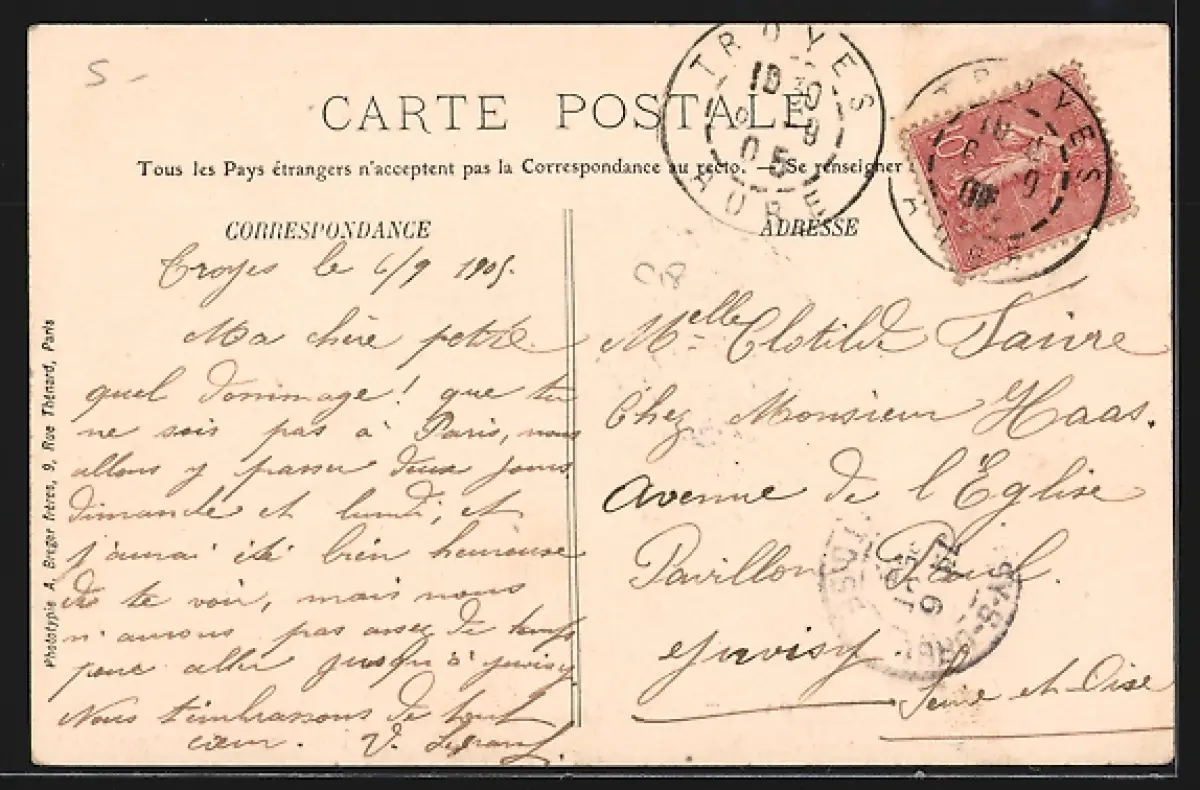 5 -
CARTE POSTALE
Tous les Pays étrangers n'acceptent pas la Correspondance au recto. — Se renseigner
TROYES
AUBE
CORRESPONDANCE
Troyes le 6/9 1905.
Ma chère petite
quel dommage! que tu
ne sois pas à Paris, nous
allons y passer deux jours
dimanche et lundi, et
j'aurai été bien heureuse
de te voir, mais nous
n'aurons pas assez de temps
pour aller jusqu'à Juvisy
Nous t'embrassons de tout
cœur. V.
ADRESSE
Melle Clotilde Faivre
Chez Monsieur Haas.
Avenue de l'Église
Pavillon Paul.
Juvisy
Seine et Oise
Phototypie A. Breger frères, 9, Rue Thénard, Paris